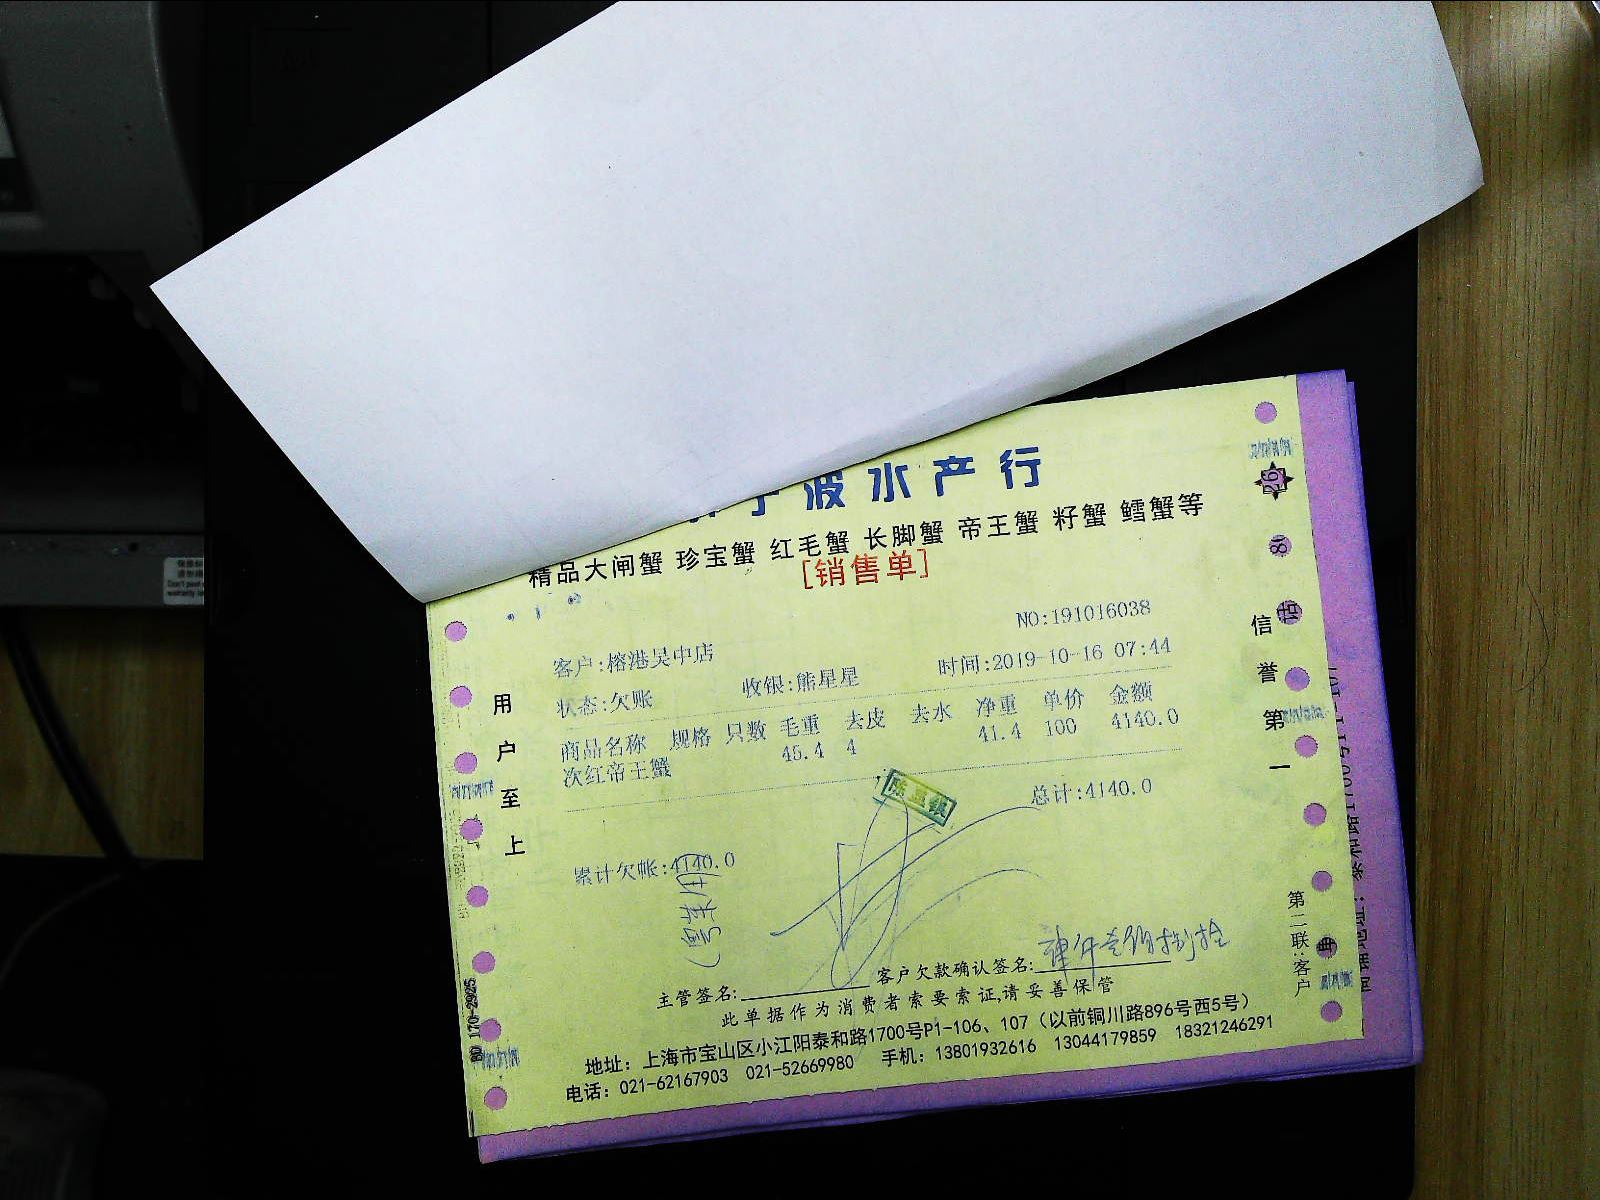 宁波水产行
精品大闸蟹 珍宝蟹 红毛蟹 长脚蟹 帝王蟹 籽蟹 鳕蟹等
[销售单]
NO:191016038
客户:榕港吴中店
状态:欠账 收银:熊星星 时间:2019-10-16 07:44
商品名称 规格 只数 毛重 去皮 去水 净重 单价 金额
次红帝王蟹 45.4 4 41.4 100 4140.0
总计:4140.0
累计欠帐:4140.0
主管签名: 客户欠款确认签名:
此单据作为消费者索要索证,请妥善保管
地址：上海市宝山区小江阳泰和路1700号P1-106、107（以前铜川路896号西5号）
电话：021-62167903 021-52669980 手机：13801932616 13044179859 18321246291
用户至上
信誉第一
第二联:客户